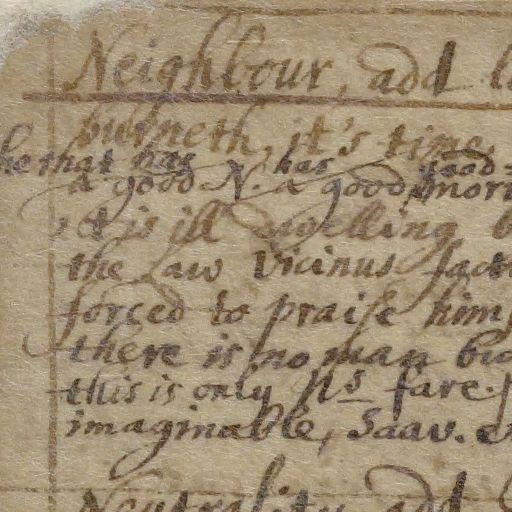 Neighbour, add
burneth, it's time
he that has has good
a good N. a good mor
& is ill dwelling b
the Law Vicinus fact
forced to praise him
there is no man bu
this is only Ns fare.
imaginable, Saav.
Neutrality, add